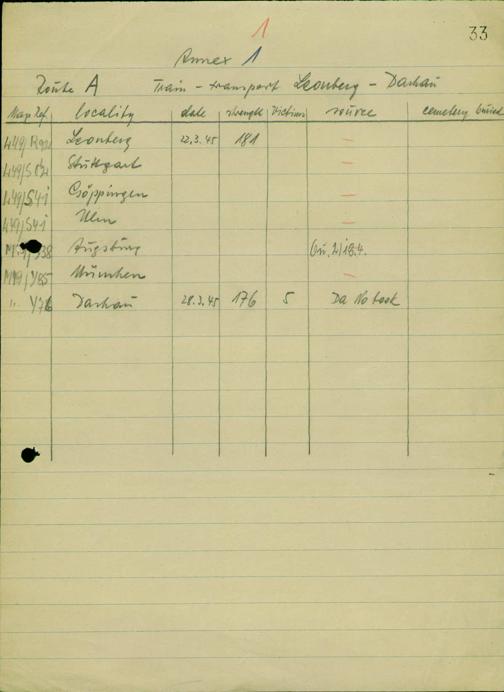 1
33
Annex 1
Route A Train - transport Leonberg - Dachau
Map Ref. locality date strength Victims source cemetery buried
L49/ Leonberg 22.3.45 181 -
L49/S Stuttgart -
L49/S41 Göppingen -
L49/S41 Ulm -
Augsburg
/Y85 München -
" Y76 Dachau 28.3.45 176 5 Da No book